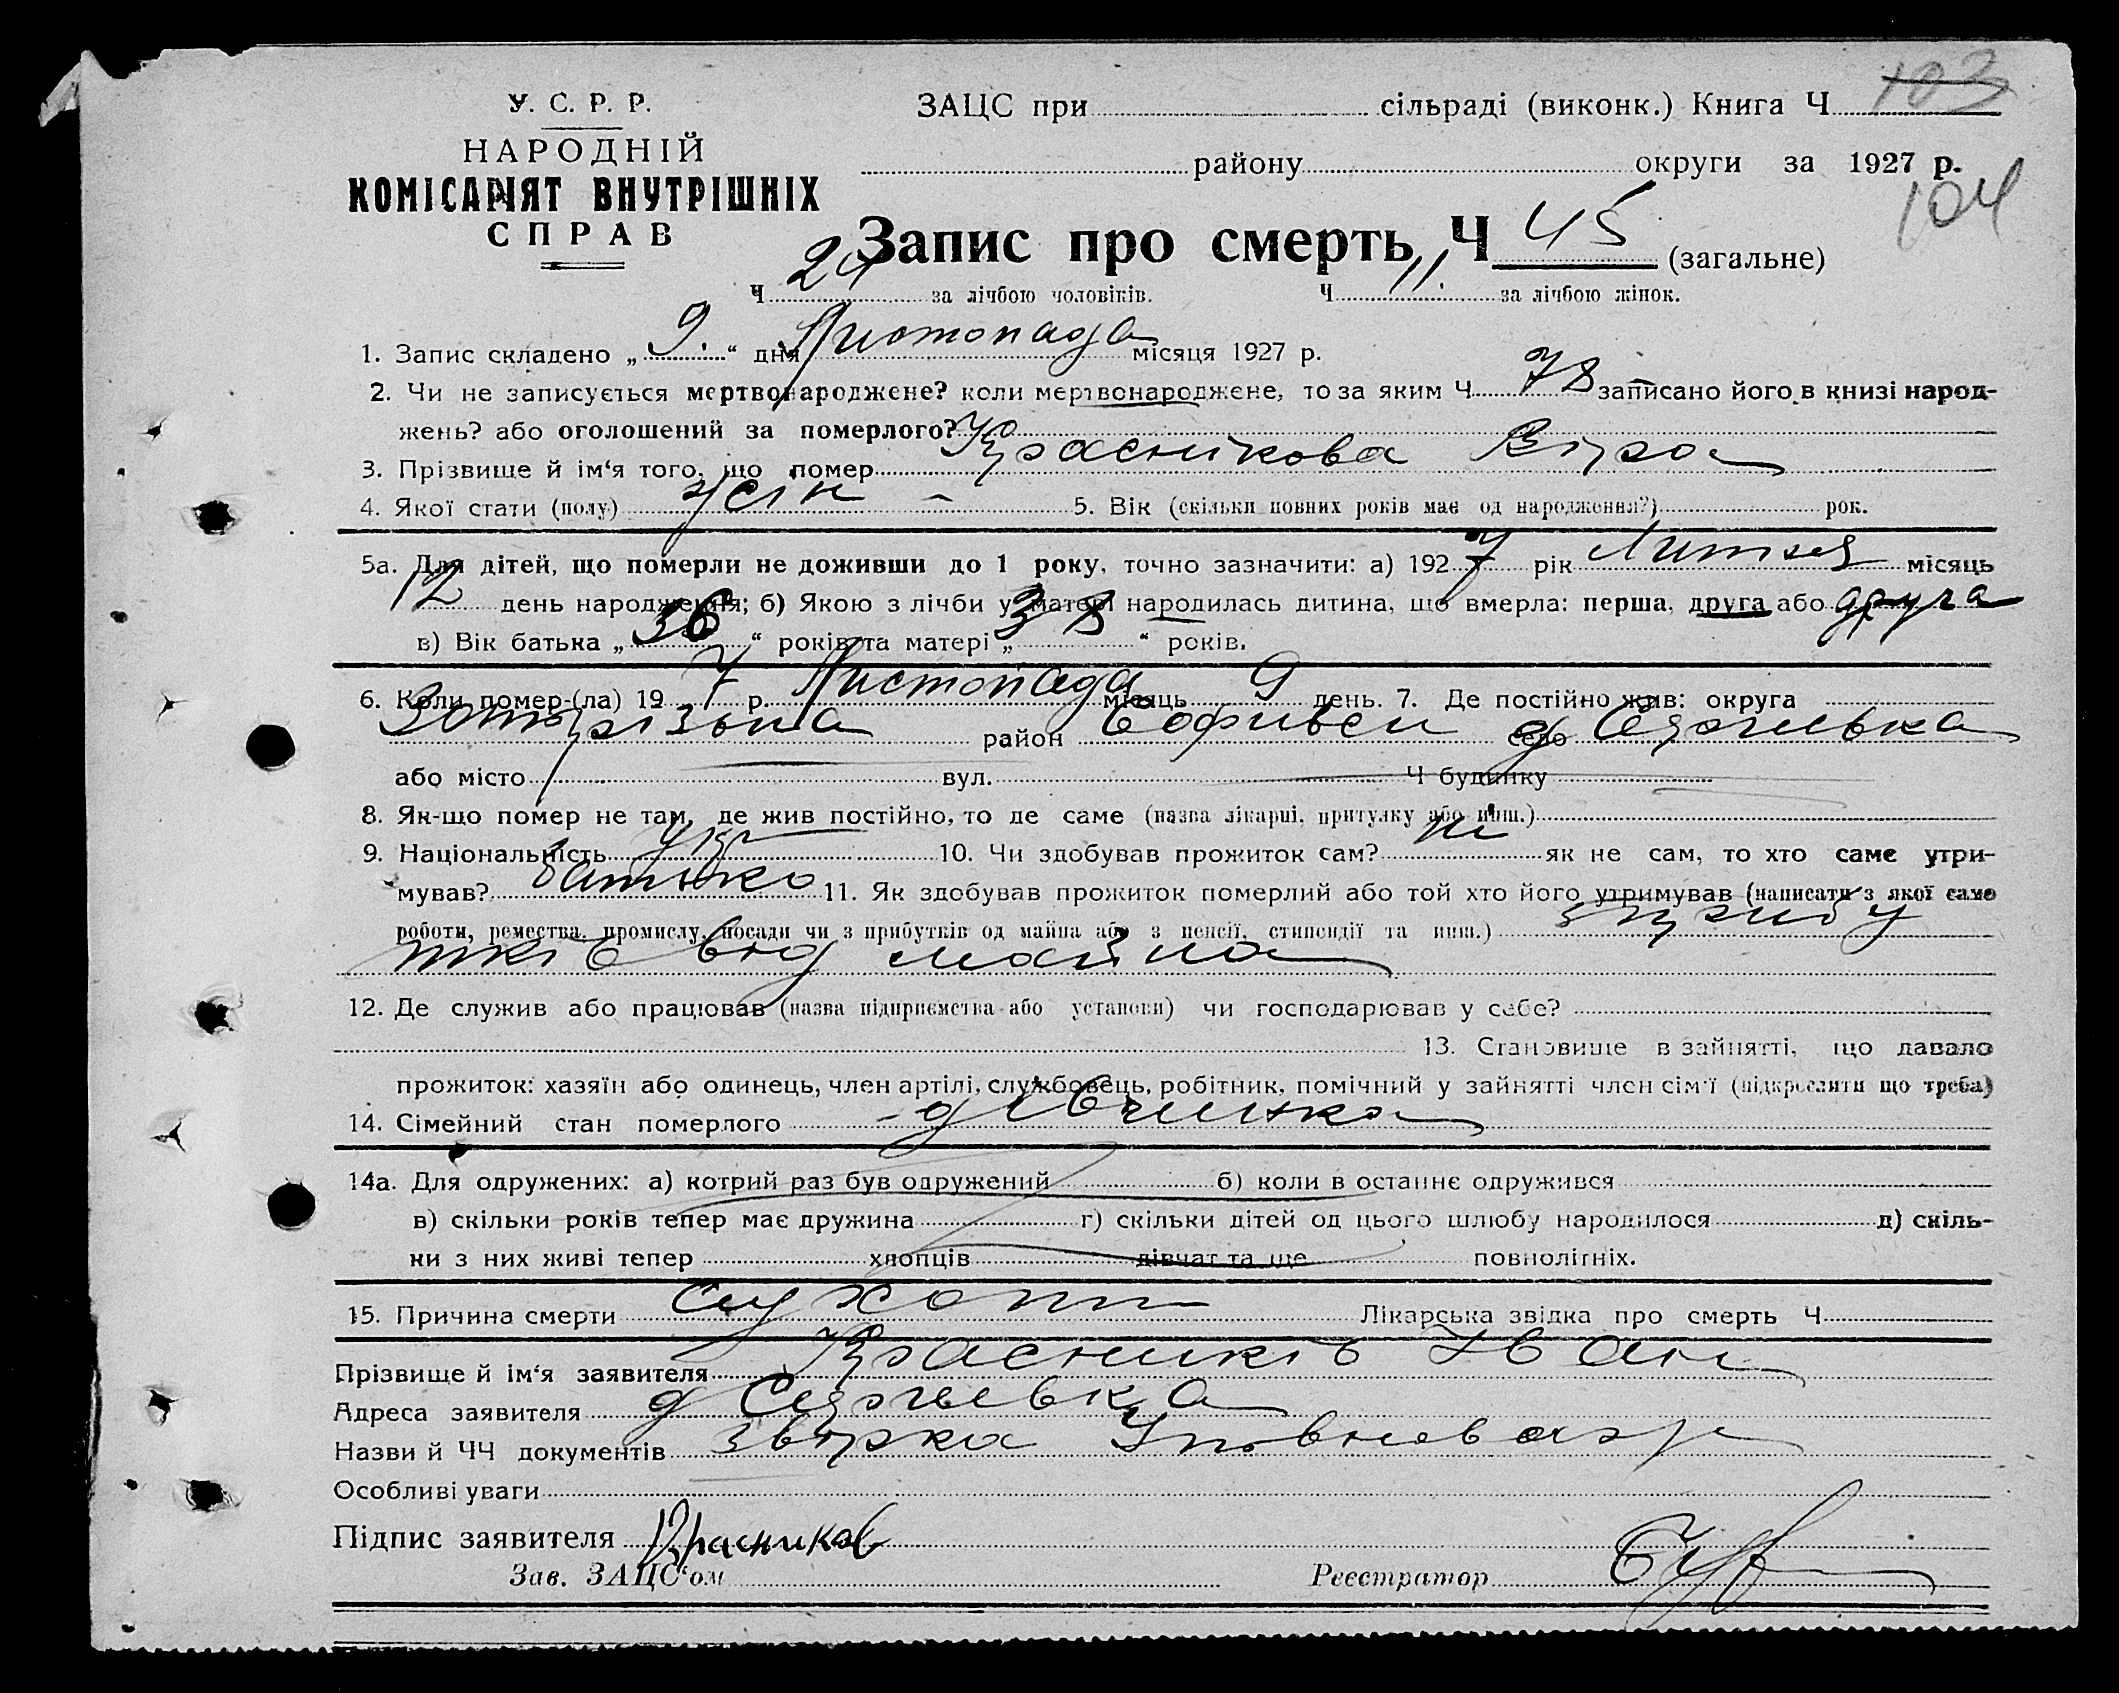 103
У. С. Р. Р.
НАРОДНІЙ
КОМІСАРІЯТ ВНУТРІШНІХ
СПРАВ
ЗАЦС при сільраді (виконк.) Книга Ч
району округи за 1927 р.
104
Запис про смерть Ч 45 (загальне)
Ч 24 за лічбою чоловіків. Ч 11. за лічбою жінок.
1. Запис складено „ 9. “ дня Листопада місяця 1927 р.
2. Чи не записується мертвонароджене? коли мертвонароджене, то за яким Ч 78 записано його в книзі народ-
жень? або оголошений за померлого?
3. Прізвище й ім‘я того, що помер Краснікова Віра
4. Якої стати (полу) жін 5. Вік (скільки повних років має од народження?) рок.
5а. Для дітей, що померли не доживши до 1 року, точно зазначити: а) 1927 рік місяць
12 день народження; б) Якою з лічби у матері народилась дитина, що вмерла: перша, друга або друга
в) Вік батька „ 36 “ років та матері „ 38 “ років.
6. Коли помер-(ла) 19 7 р. Листопада місяць 9 день. 7. Де постійно жив: округа
район село
або місто вул. Ч будинку
8. Як-що помер не там, де жив постійно, то де саме (назва лікарні, притулку або инш.)
9. Національність укр 10. Чи здобував прожиток сам? ні як не сам, то хто саме утри-
мував? батько 11. Як здобував прожиток померлий або той хто його утримував (написати з якої саме
роботи, ремества, промислу, посади чи з прибутків од майна або з пенсії, стипендії та инш.) з прибу
тків від майна
12. Де служив або працював (назва підприємства або установи) чи господарював у себе?
13. Становище в зайнятті, що давало
прожиток: хазяїн або одинець, член артілі, службовець, робітник, помічний у зайнятті член сім‘ї (підкреслити що треба)
14. Сімейний стан померлого дівчинка
14а. Для одружених: а) котрий раз був одружений б) коли в останнє одружився
в) скільки років тепер має дружина г) скільки дітей од цього шлюбу народилося д) скіль-
ки з них живі тепер хлопців дівчат та ще повнолітніх.
15. Причина смерти сухоти Лікарська звідка про смерть Ч
Прізвище й ім‘я заявителя Красників Іван
Адреса заявителя
Назви й ЧЧ документів
Особливі уваги
Підпис заявителя Красников
Зав. ЗАЦС‘ом Реєстратор